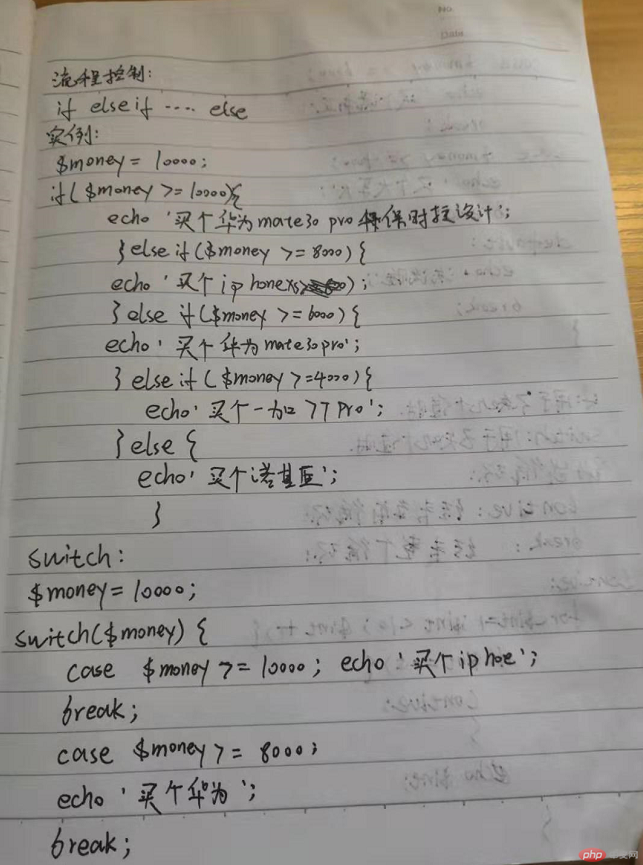 No.
Date
流程控制:
if else if .... else
实例:
$money = 10000;
if($money >= 10000){
echo '买个华为mate30 pro 保时捷设计';
}else if($money >= 8000){
echo '买个iphonexs);
}else if($money >= 6000){
echo '买个华为mate30pro';
}else if($money >=4000){
echo '买个一加77pro';
}else{
echo '买个诺基亚';
}
switch:
$money = 10000;
switch($money) {
case $money >= 10000; echo '买个iphoe';
break;
case $money >= 8000;
echo '买个华为';
break;
php